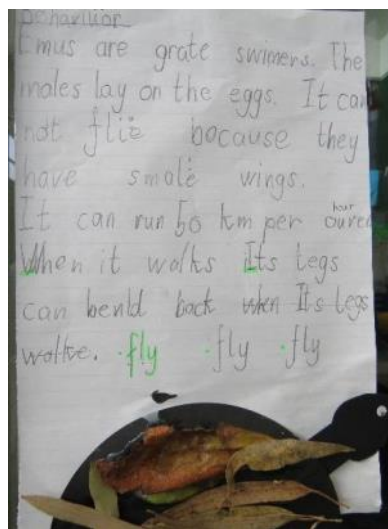 Behaviour
Emus are grate swimers. The
males lay on the eggs. It can
not flie because they
have smale wings.
It can run 50 km per hour
When it walks Its legs
can bend back when Its legs
fly fly fly